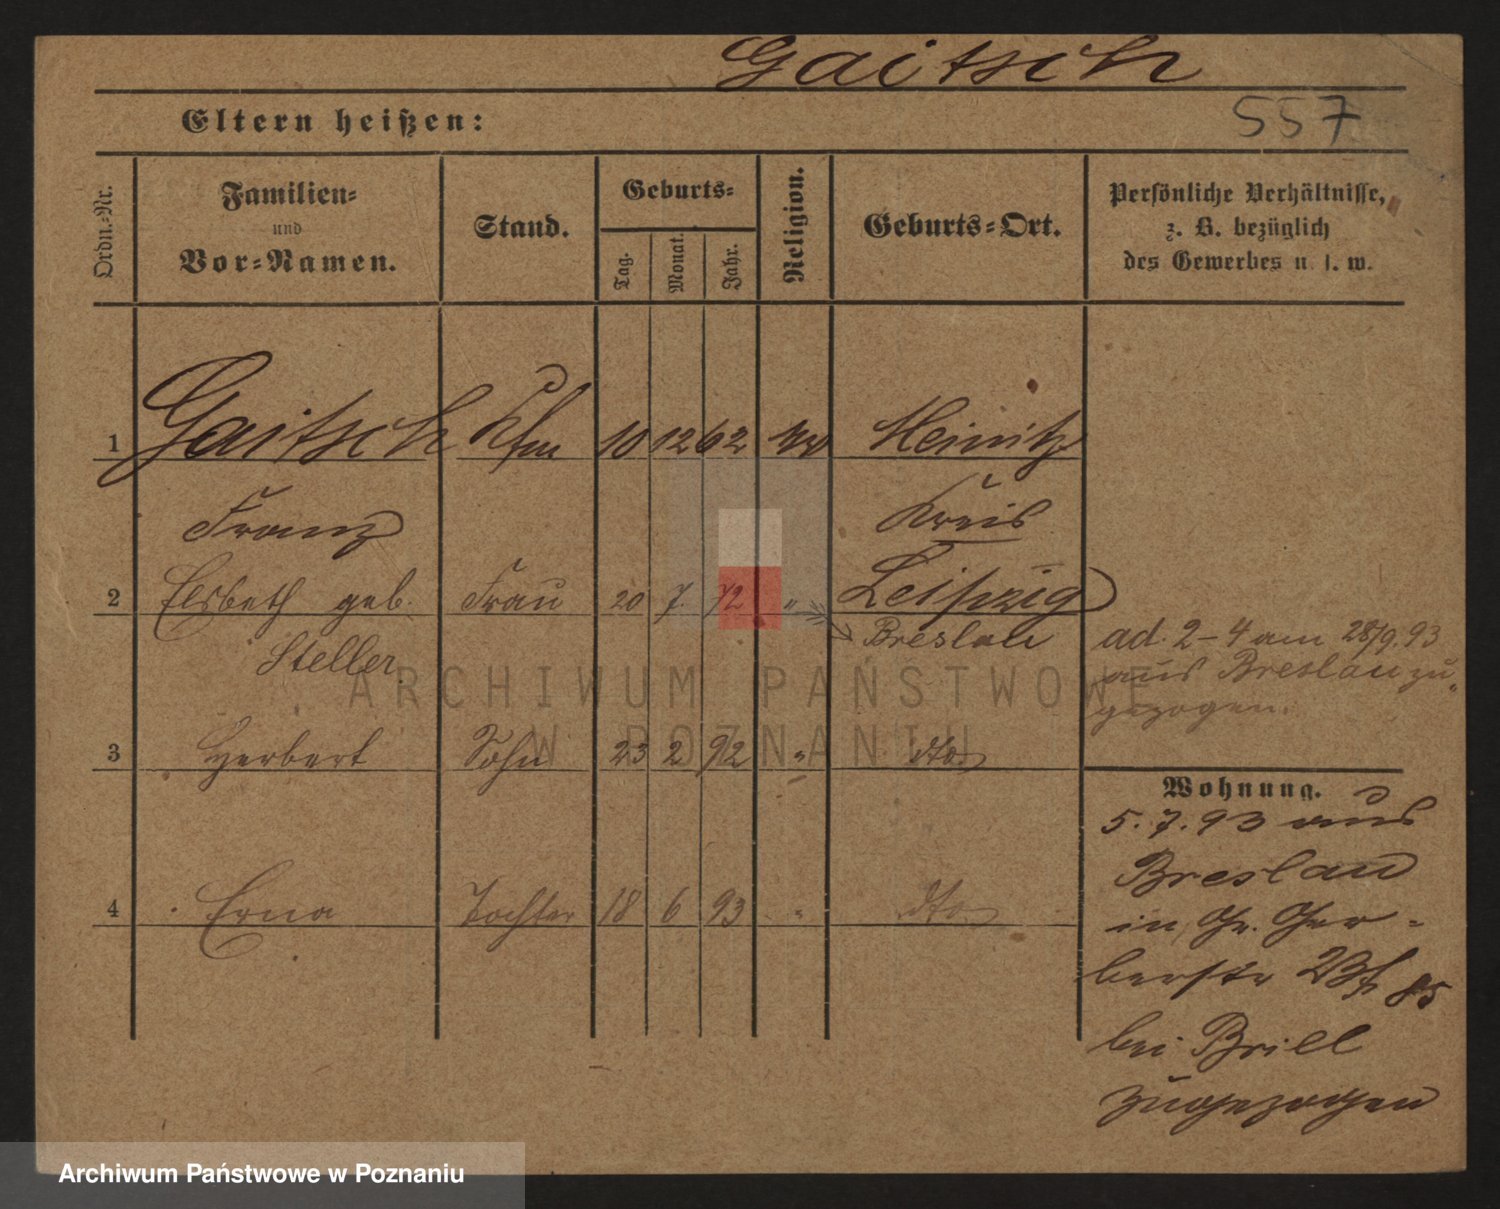 Gaitsch
Eltern heißen:
557
Ordn.-Nr.
Familien-
und
Vor-Namen.
Stand.
Geburts-
Tag.
Monat.
Jahr.
Religion.
Geburts-Ort.
Persönliche Verhältnisse,
z. B. bezüglich
des Gewerbes u. s. w.
1 Gaitsch Kfm 10 12 62 Heinitz
Franz Kreis
2 Elsbeth geb. Frau 20 7. 72 " Leipzig
Steller Breslau
ad. 2-4 am 28/9.93
aus Breslau zu-
gezogen.
3 Herbert Sohn 23 2 92 " dto
4 Erna Tochter 18 6 93 " dto
Wohnung.
5.7.93 aus
Breslau
in Gr. Ger-
berstr
bei Brill
zugezogen
ARCHIWUM PAŃSTWOWE
W POZNANIU
Archiwum Państwowe w Poznaniu